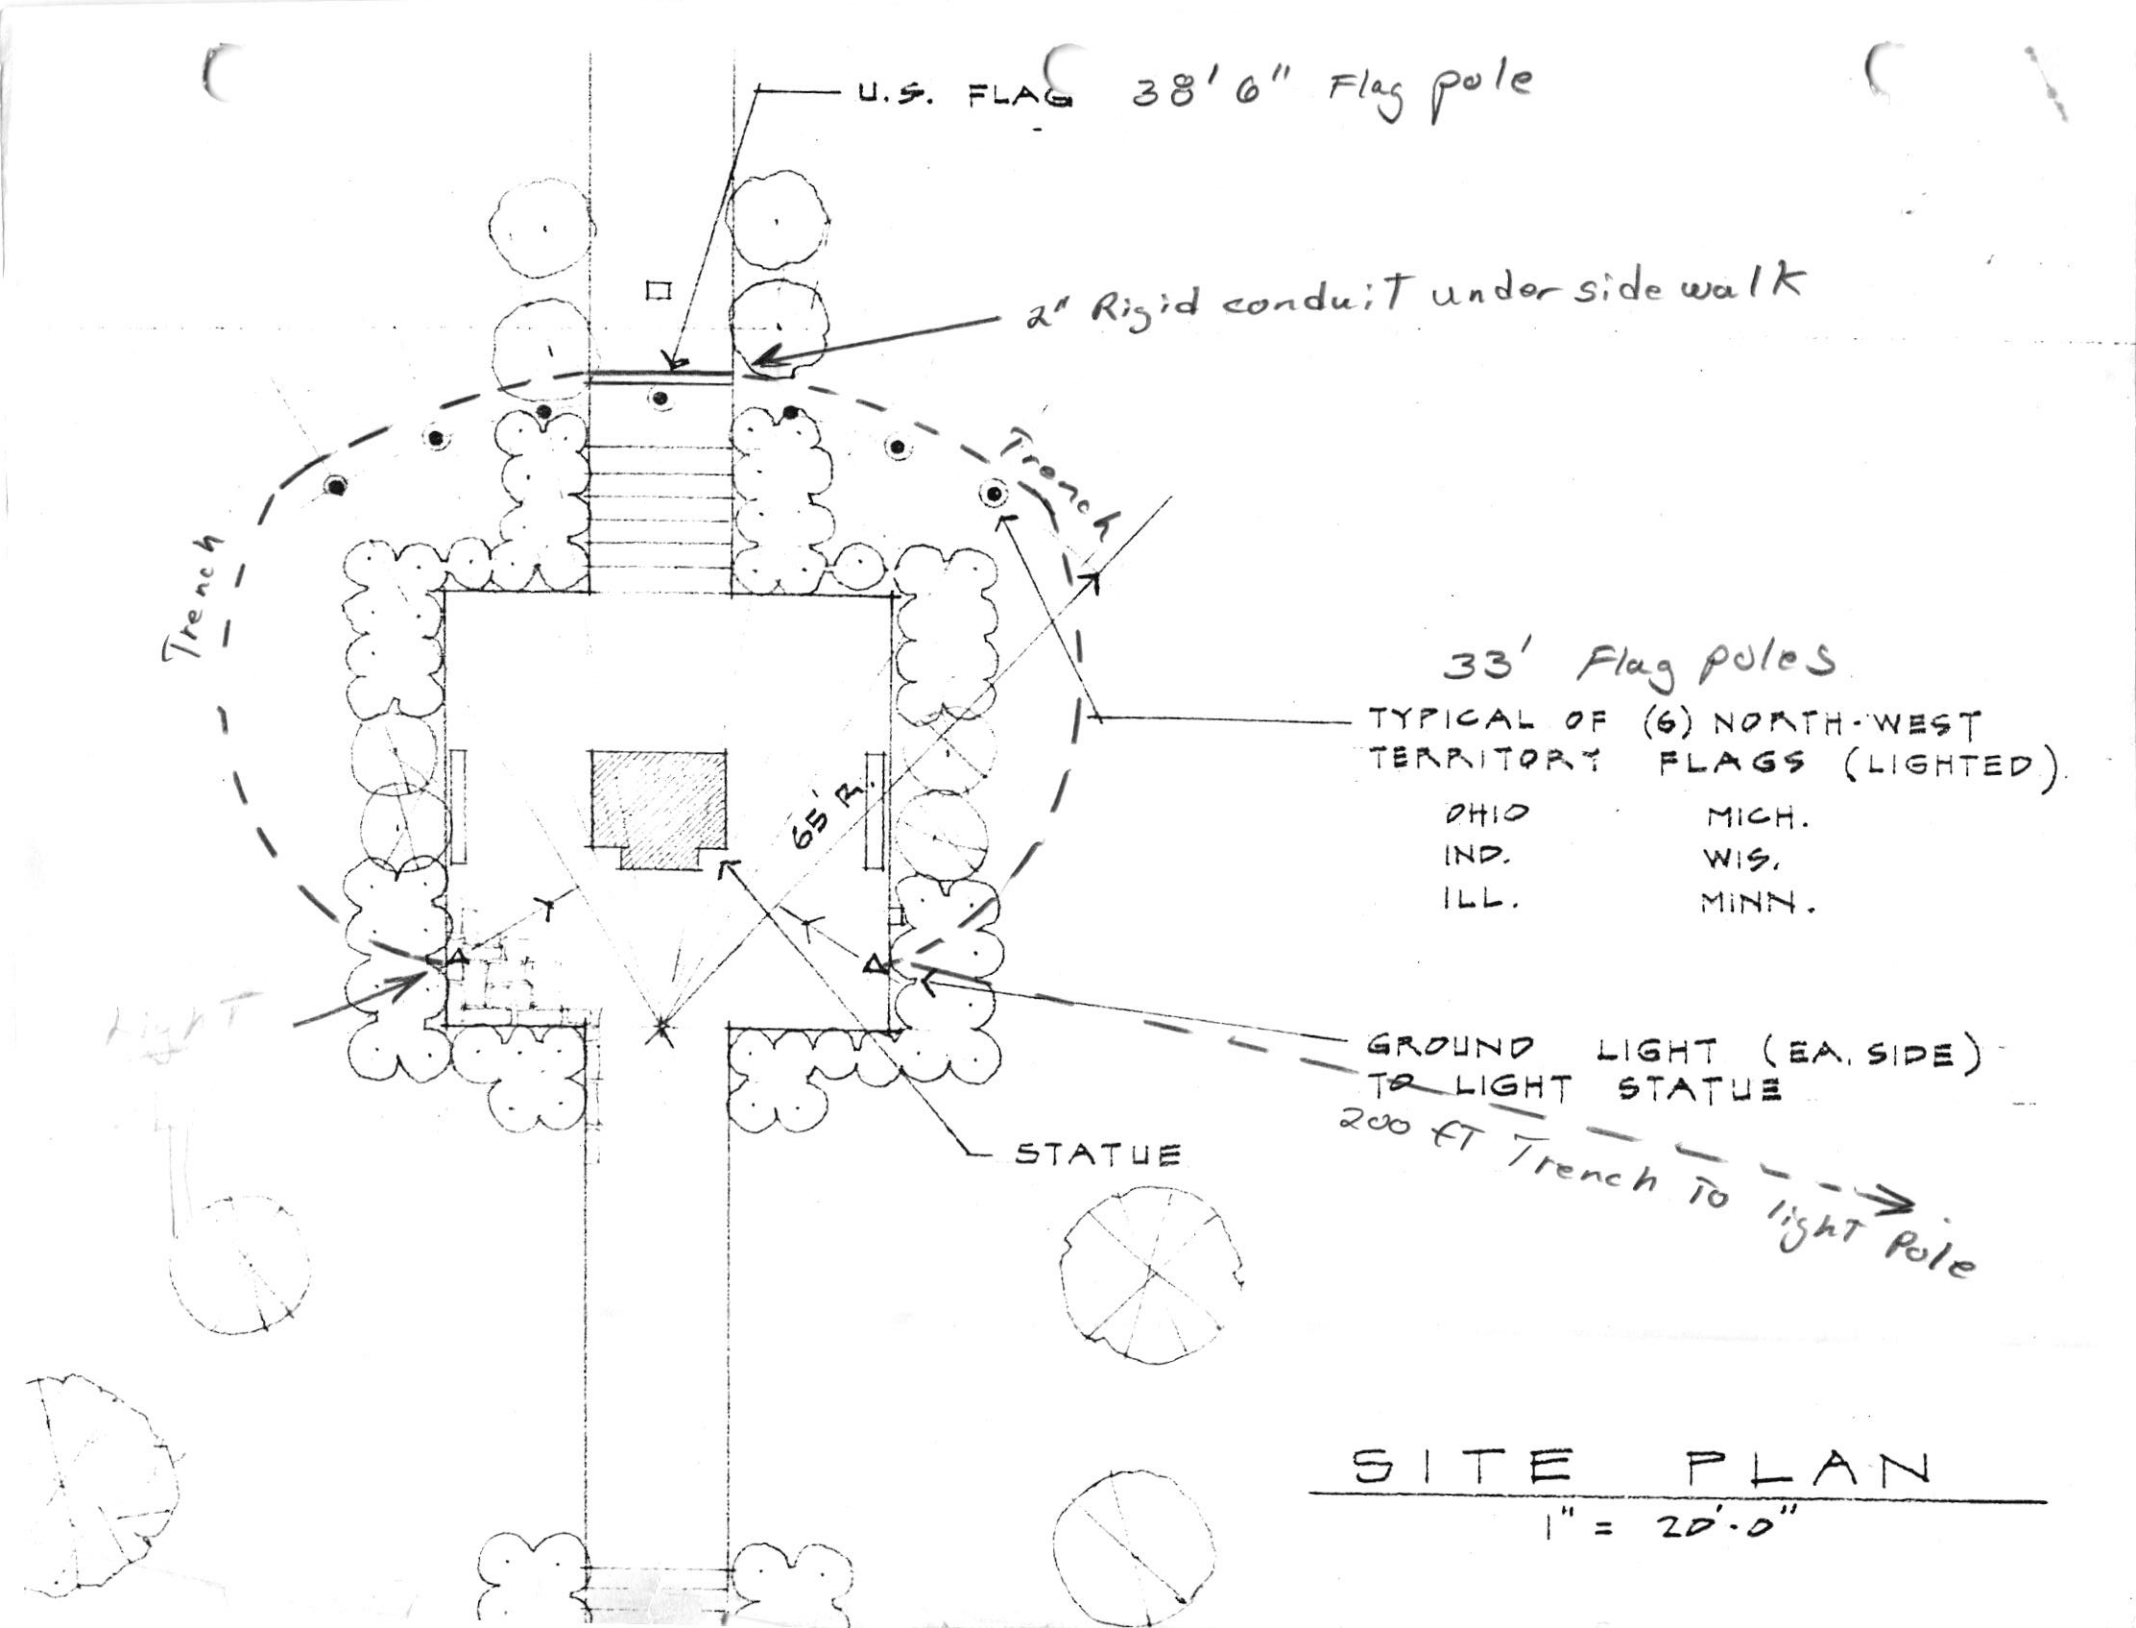 U.S. FLAG 38' 6" Flag pole
2" Rigid conduit under side walk
Trench
Trench
33' Flag poles
TYPICAL OF (6) NORTH-WEST
TERRITORY FLAGS (LIGHTED)
OHIO MICH.
IND. WIS.
ILL. MINN.
65' R.
Light
GROUND LIGHT (EA. SIDE)
TO LIGHT STATUE
200 ft Trench To light Pole
STATUE
SITE PLAN
1" = 20'-0"